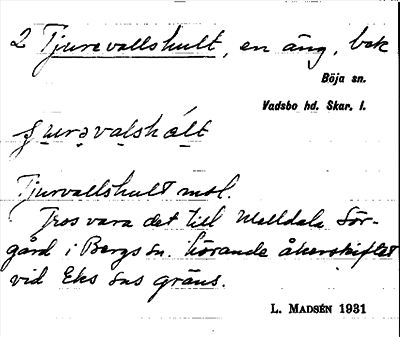 2 Tjurevallshult, en äng, bek
Böja sn.
Vadsbo hd. Skar. l.
ʃurəvalshúlt
Tjurvallshult msl.
Tros vara det till Malldala Sör-
gård i Bergs sn. hörande åkerskiftet
vid Eks sns gräns.
L. MADSÉN 1931